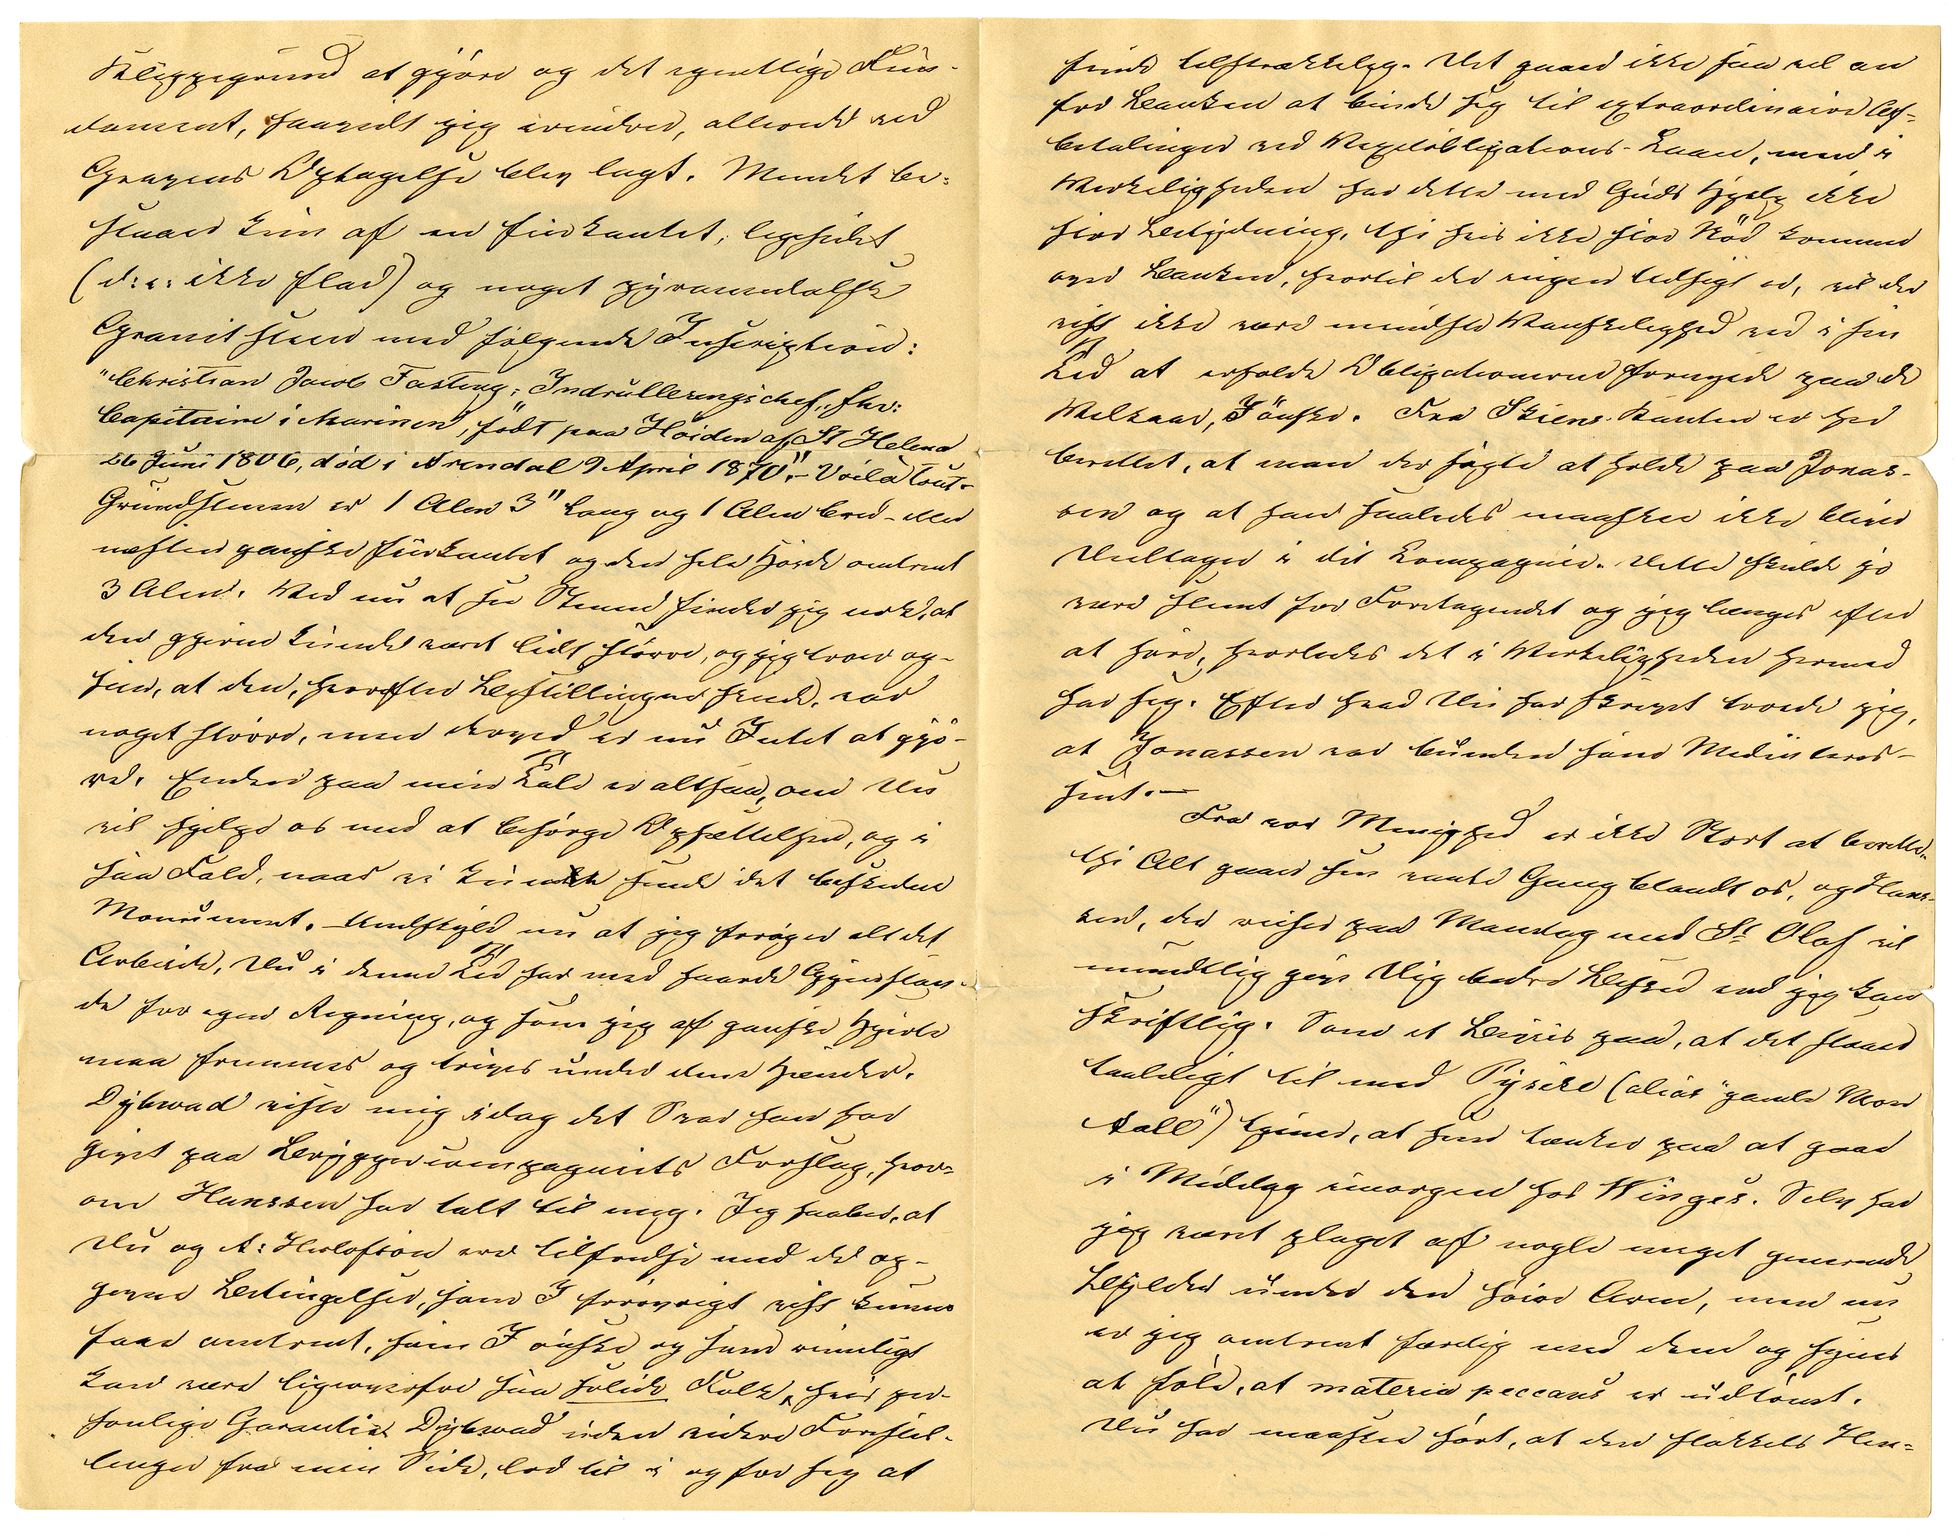 Klippegrund at gjöre og det egentlige Fun-
dament, saavidt jeg erindrer, allerede ved
Gravens Optagelse blev lagt. Mindet be-
staaer kun af en firkantet, ligesidet
(d:e: ikke flad) og noget pyramidalsk
Granitsteen med følgende Inscription:
"Christian Jacob Fasting, Indrulleringschef, fhv:
Capitaine i Marinen, födt paa Höiden af St Helena
26 Juni 1806, död i Arendal 9 April 1870".- Voila tout.
Grundstenen er 1 Alen 3" lang og 1 Alen bred - altsaa
næsten ganske fiirkantet og den hele Höide omtrent
3 Alen. Ved nu at see Stenen finder jeg nok, at
den gjerne kunde været lidt större, og jeg troer og-
saa, at den, hvorefter Bestillingen skede, var
noget större, men derved er nu Intet at gjö-
re. Enden paa min Tale er altsaa, om Du
vil hjelpe os med at besörge Opsættelsen, og i
saa Fald, naar vi kunde sende det beskedne
Monument. - Undskyld nu at jeg foröger alt det
Arbeide, Du i denne Tid har med haarde Gjenstan-
de for egen Regning, og som jeg af ganske Hjerte
maa fremmes og trives under dine Hænder.
Dybwad viste mig idag det Svar han har
givet paa Bryggecompagniets Forslag, hvor-
om Hanssen har talt til mig. Jeg haaber, at
Du og A: Herlofson ere tilfredse med de op-
givne Betingelser, som I forövrigt vist kunne
faae omtrent, som I önske og som rimeligt
kan være ligeoverfor saa solide Folk, hvis per-
sonlige Garantier Dybwad uden videre Forestil-
linger fra min Side, lod til i og for sig at
finde tilstrækkelig. Det gaaer ikke saa vel an
for Banken at binde sig til extraordinaire Af-
betalinger ved Vexelobligations-Laan, men i
Virkeligheden har dette med Guds Hjelp ikke
stor Betydning, thi hvis ikke stor Nöd kommer
over Banken, hvortil der ingen Udsigt er, vil der
vist ikke være mindste Vanskelighed ved i sin
Tid at erholde Obligationerne fornyede paa de
Vilkaar, I önske. Fra Skiens Kanten er her
berettet, at man der sögte at holde paa Jonas-
sen og at han saaledes maaskee ikke bliver
Deeltager i dit Kompagnie. Dette skulde jo
være slemt for Foretagendet og jeg længes efter
at höre, hvorledes det i Virkeligheden hermed
har sig. Efter hvad Du har skrevet troede jeg,
at Jonassen var bunden som Medinteres-
sent. -
Fra vor Menighed er ikke Stort at berette,
thi Alt gaaer sin vante Gang blandt os, og Hans-
sen, der reiser paa Mandag med St Olaf vil
mundtlig give Dig bedre Besked end jeg kan
skriftlig. Som et Beviis paa, at det staaer
taaleligt til med (alias "gamle Mor
Aall") tjener, at hun tænker paa at gaae
i Middag imorgen hos Winges. Selv har
jeg været plaget af nogle meget generende
Bylder under den höire Arm, men nu
er jeg omtrent færdig med dem og synes
at föle, at materia peccans er udtömt.
Du har maaskee hört, at den stakkels Hen-